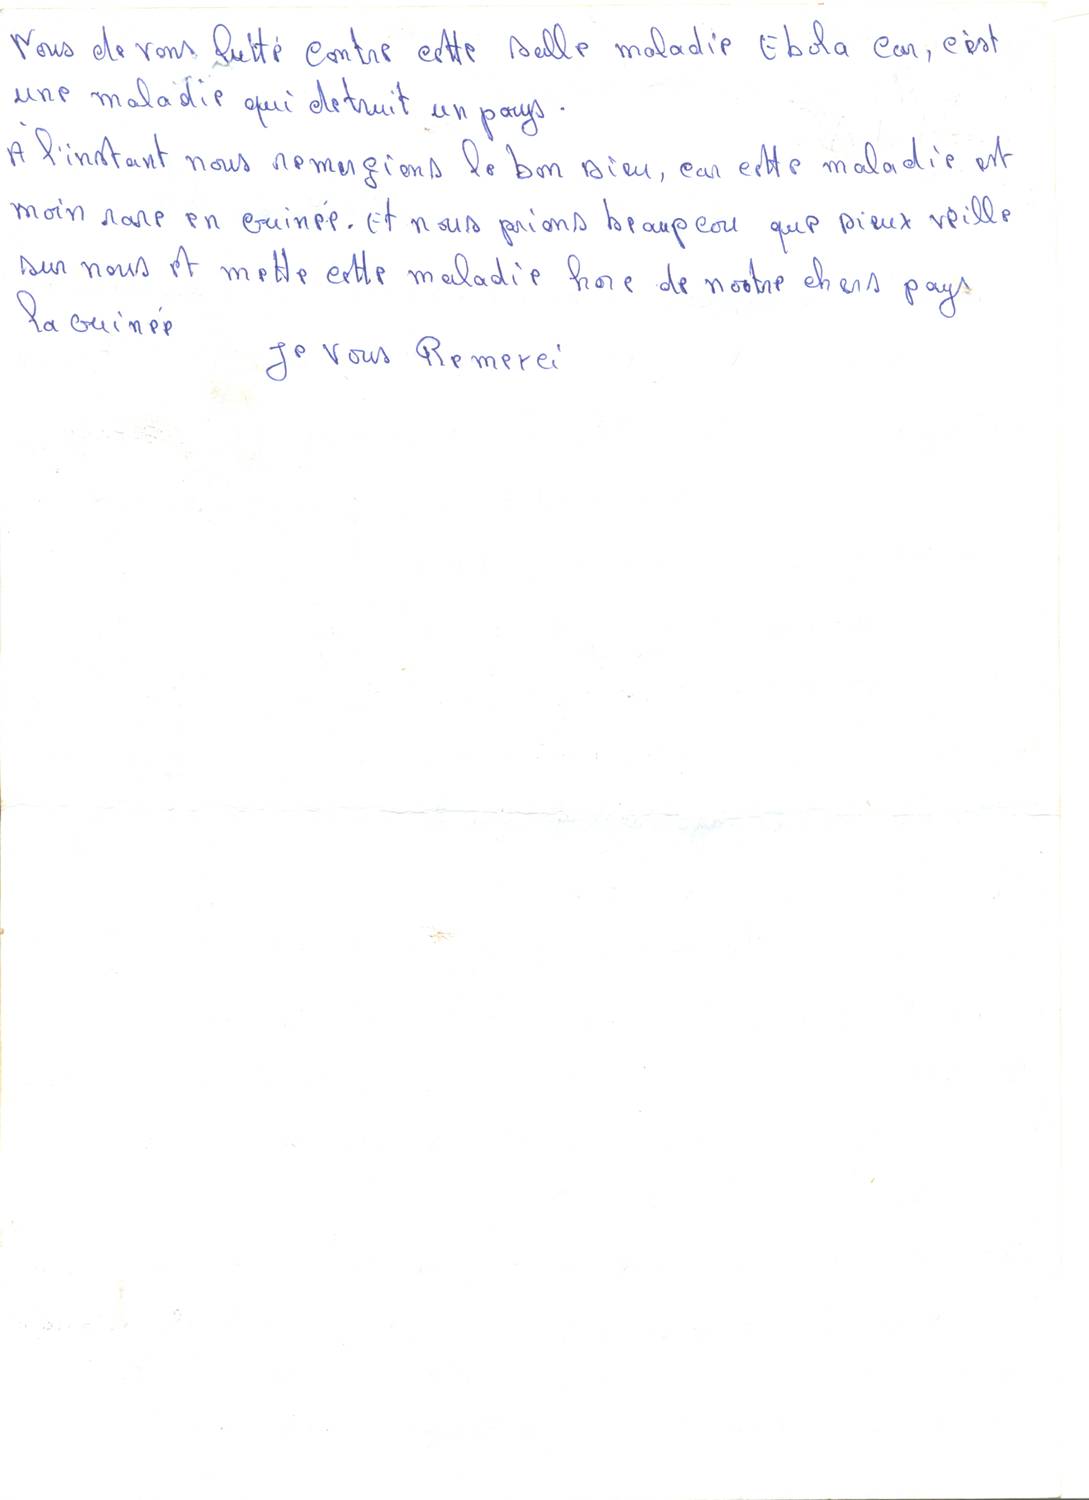 Nous de vons lutté contre cette salle maladie Ebola car, c'est
une maladie qui detruit un pays.
À l'instant nous remergions le bon Dieu, car cette maladie est
moin rare en Guinée. Et nous prions beaupcou que Dieux veille
sur nous et mette cette maladie hore de nootre chers pays
la Guinée
Je vous Remerci